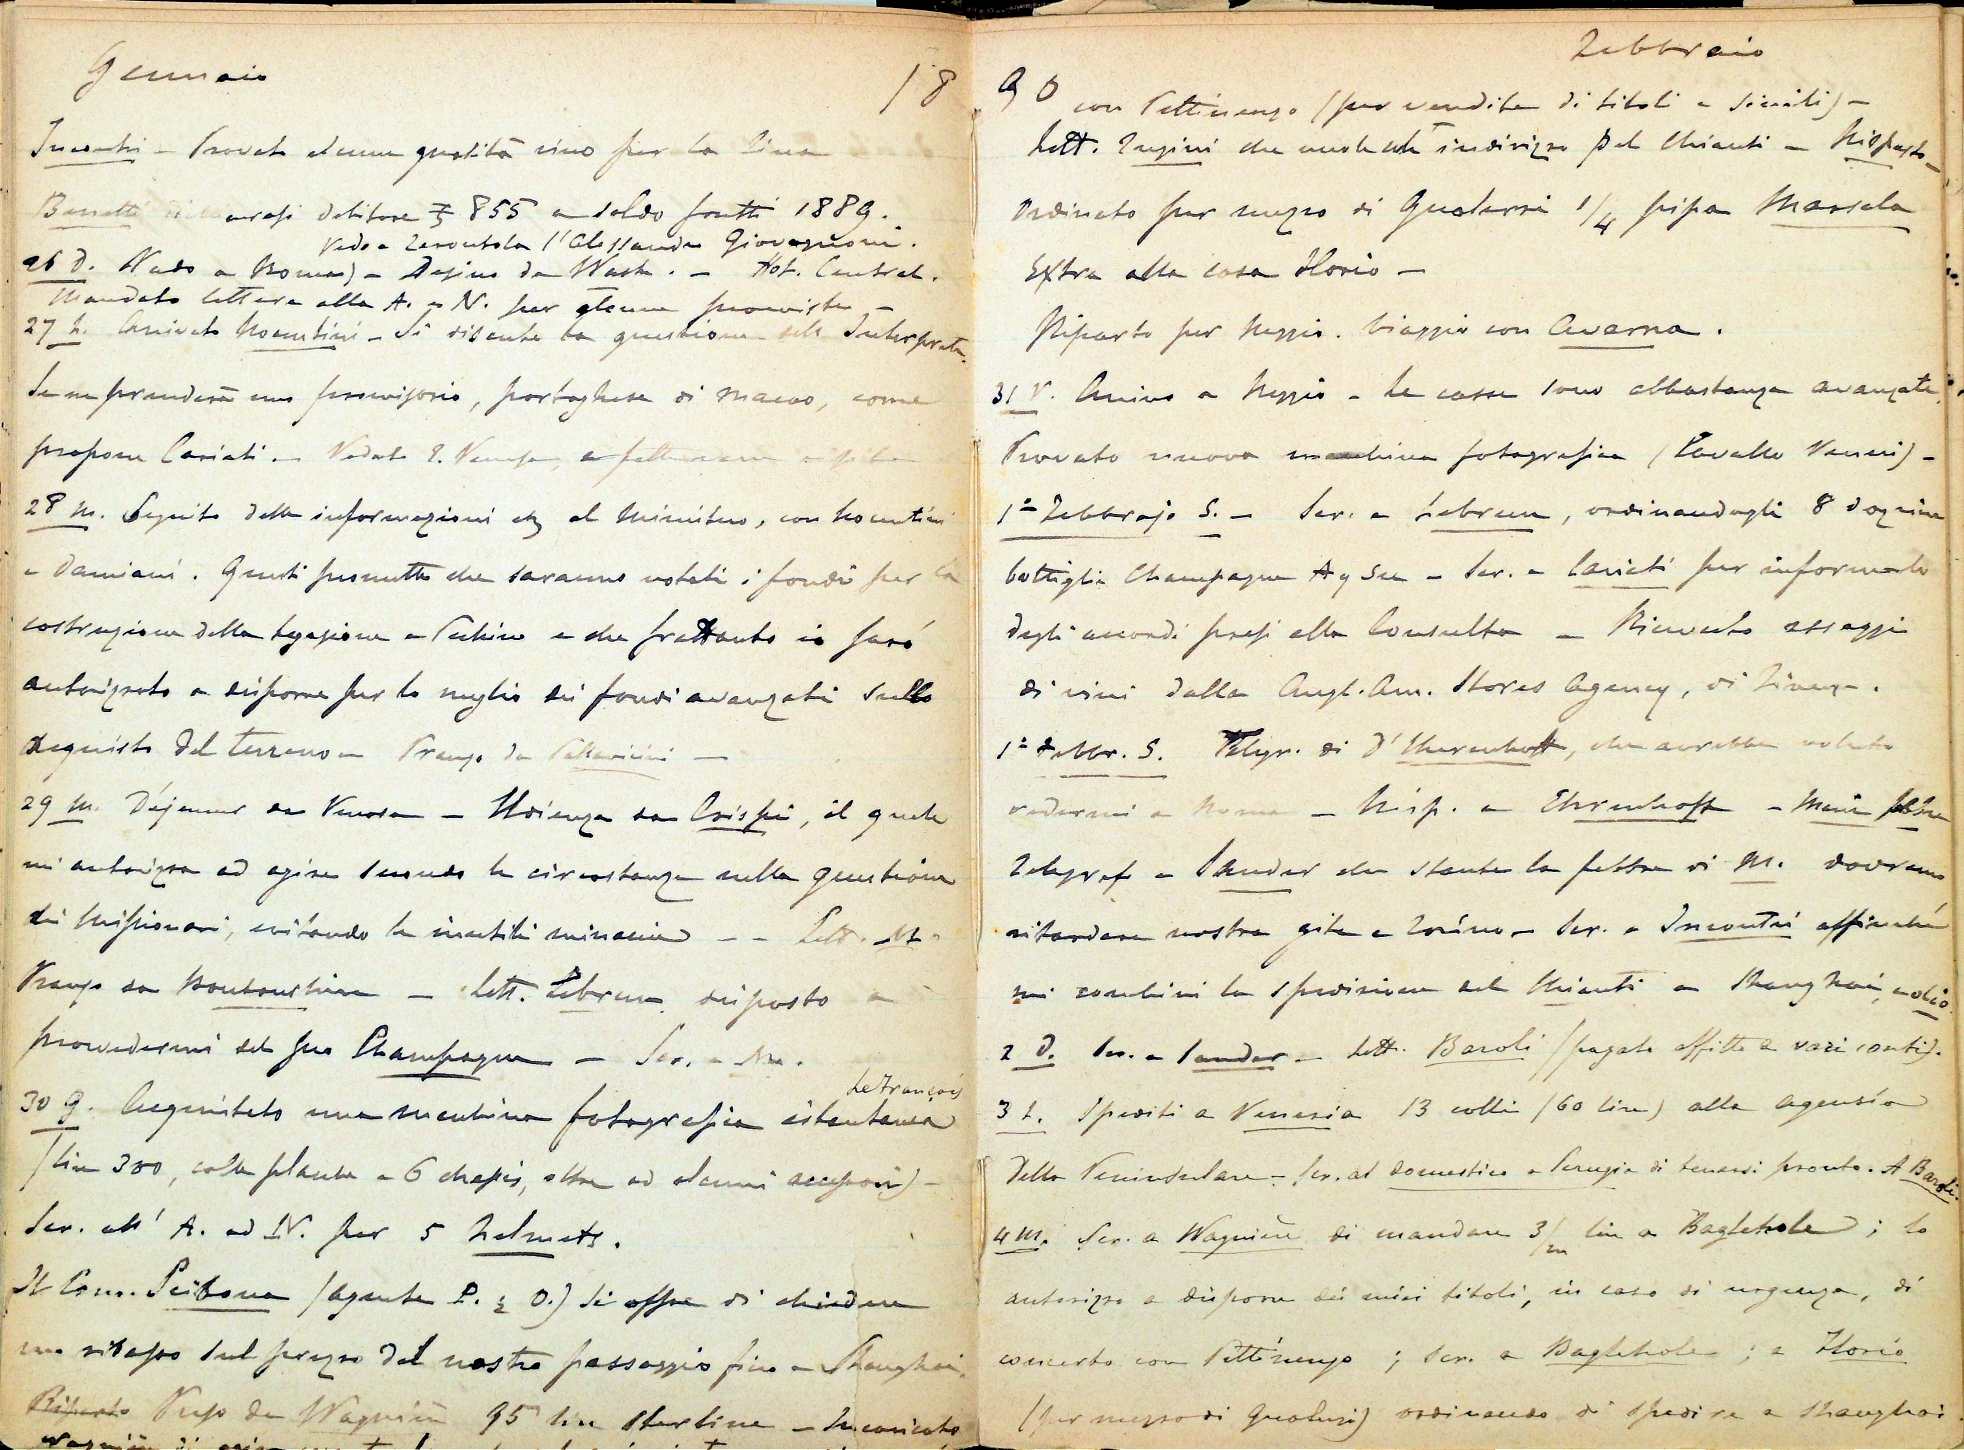 Gennaio 18
Incontri - Provato alcune qualità vino per la Cina
Benetti debitore 855 a saldo frutti 1889.
Vedo a Terontola l'Alessandro Giovagnoni.
26 D. Vado a Roma) - Desino da Wash. - Hot. Central.
Mandato lettera alla A. & N. per alcune provviste -
27 L. Arrivato Nocentini - Si discute la questione dell' Interprete.
Se ne prenderà uno provvisorio, portoghese di Macao, come
propone Cariati. - Veduto
28 M. Seguito delle informazioni al Ministero, con Nocentini
e Damiani. Questi promette che saranno votati i fondi per la
costruzione della Legazione a Pechino e che frattanto io sarò
autorizzato a disporre per lo meglio dei fondi avanzati sullo
acquisto del terreno - Pranzo da Pallavicini -
29 M. Déjeuner da Venosa - Udienza da Crispi, il quale
mi autorizza ad agire secondo le circostanze nella questione
dei Missionari, evitando le inutili minaccie - - Lett. M.
Pranzo da - Lett. Lebrun disposto a
provvedermi del suo Champagne - Scr. a
LeFrançois
30 G. Acquistato una macchina fotografica istantanea
(lire 300, colle placche e 6 chassis, oltre ad alcuni accessori) -
Scr. all' A. ad N. per 5 helmets.
Il Com. (agente P. & O.) si offre di chiedere
un ribasso sul prezzo del nostro passaggio fino a Shanghai.
Riparto Preso da Wagnière 95 lire sterline - Incaricato
Febbraio
90 con Pettinengo (per vendita di titoli e simili) -
Lett. che vuole indirizzo pel Chianti - Risposto -
Ordinato per mezzo di Gualterri 1/4 pipa Marsala
Extra alla casa Florio -
Riparto per Reggio. Viaggio con Avarna.
31 V. Arrivo a Reggio - Le casse sono abbastanza avanzate.
Provato nuova macchina fotografica (Cavallo Vanni) -
1° Febbrajo S. - Scr. a Lebrun, ordinandogli 8 dozzine
bottiglie Champagne Ay Sec - Scr. a Cariati per informarlo
degli accordi presi alla Consulta - Ricevuto assaggi
di vini dalla Angl. Am. Stores Agency, di Firenze.
1° Febbr. S. Telegr. di d'Ehrenhoff, che avrebbe voluto
vedermi a Roma - Risp. a Ehrenhoff -
Telegraf. a Sander che stante la febbre di M. dovremo
ritardare nostra gita a Torino - Scr. a Incontri affinché
mi combini la spedizione del Chianti a Shanghai, e olio
2 D. Scr. a Sander - Lett. Baroli (pagato affitto e vari conti).
3 L. Spediti a Venezia 13 colli (60 lire) alla Agenzia
della Peninsulare - Scr. al domestico a Perugia di tenersi pronto. A Baroli.
4 M. Scr. a Wagnière di mandare 3/m lire a Baglehole; lo
autorizzo a disporre dei miei titoli, in caso di urgenza, di
concerto con Pettinengo; scr. a Baglehole; a Florio
(per mezzo di Gualterri) ordinando di spedire a Shanghai